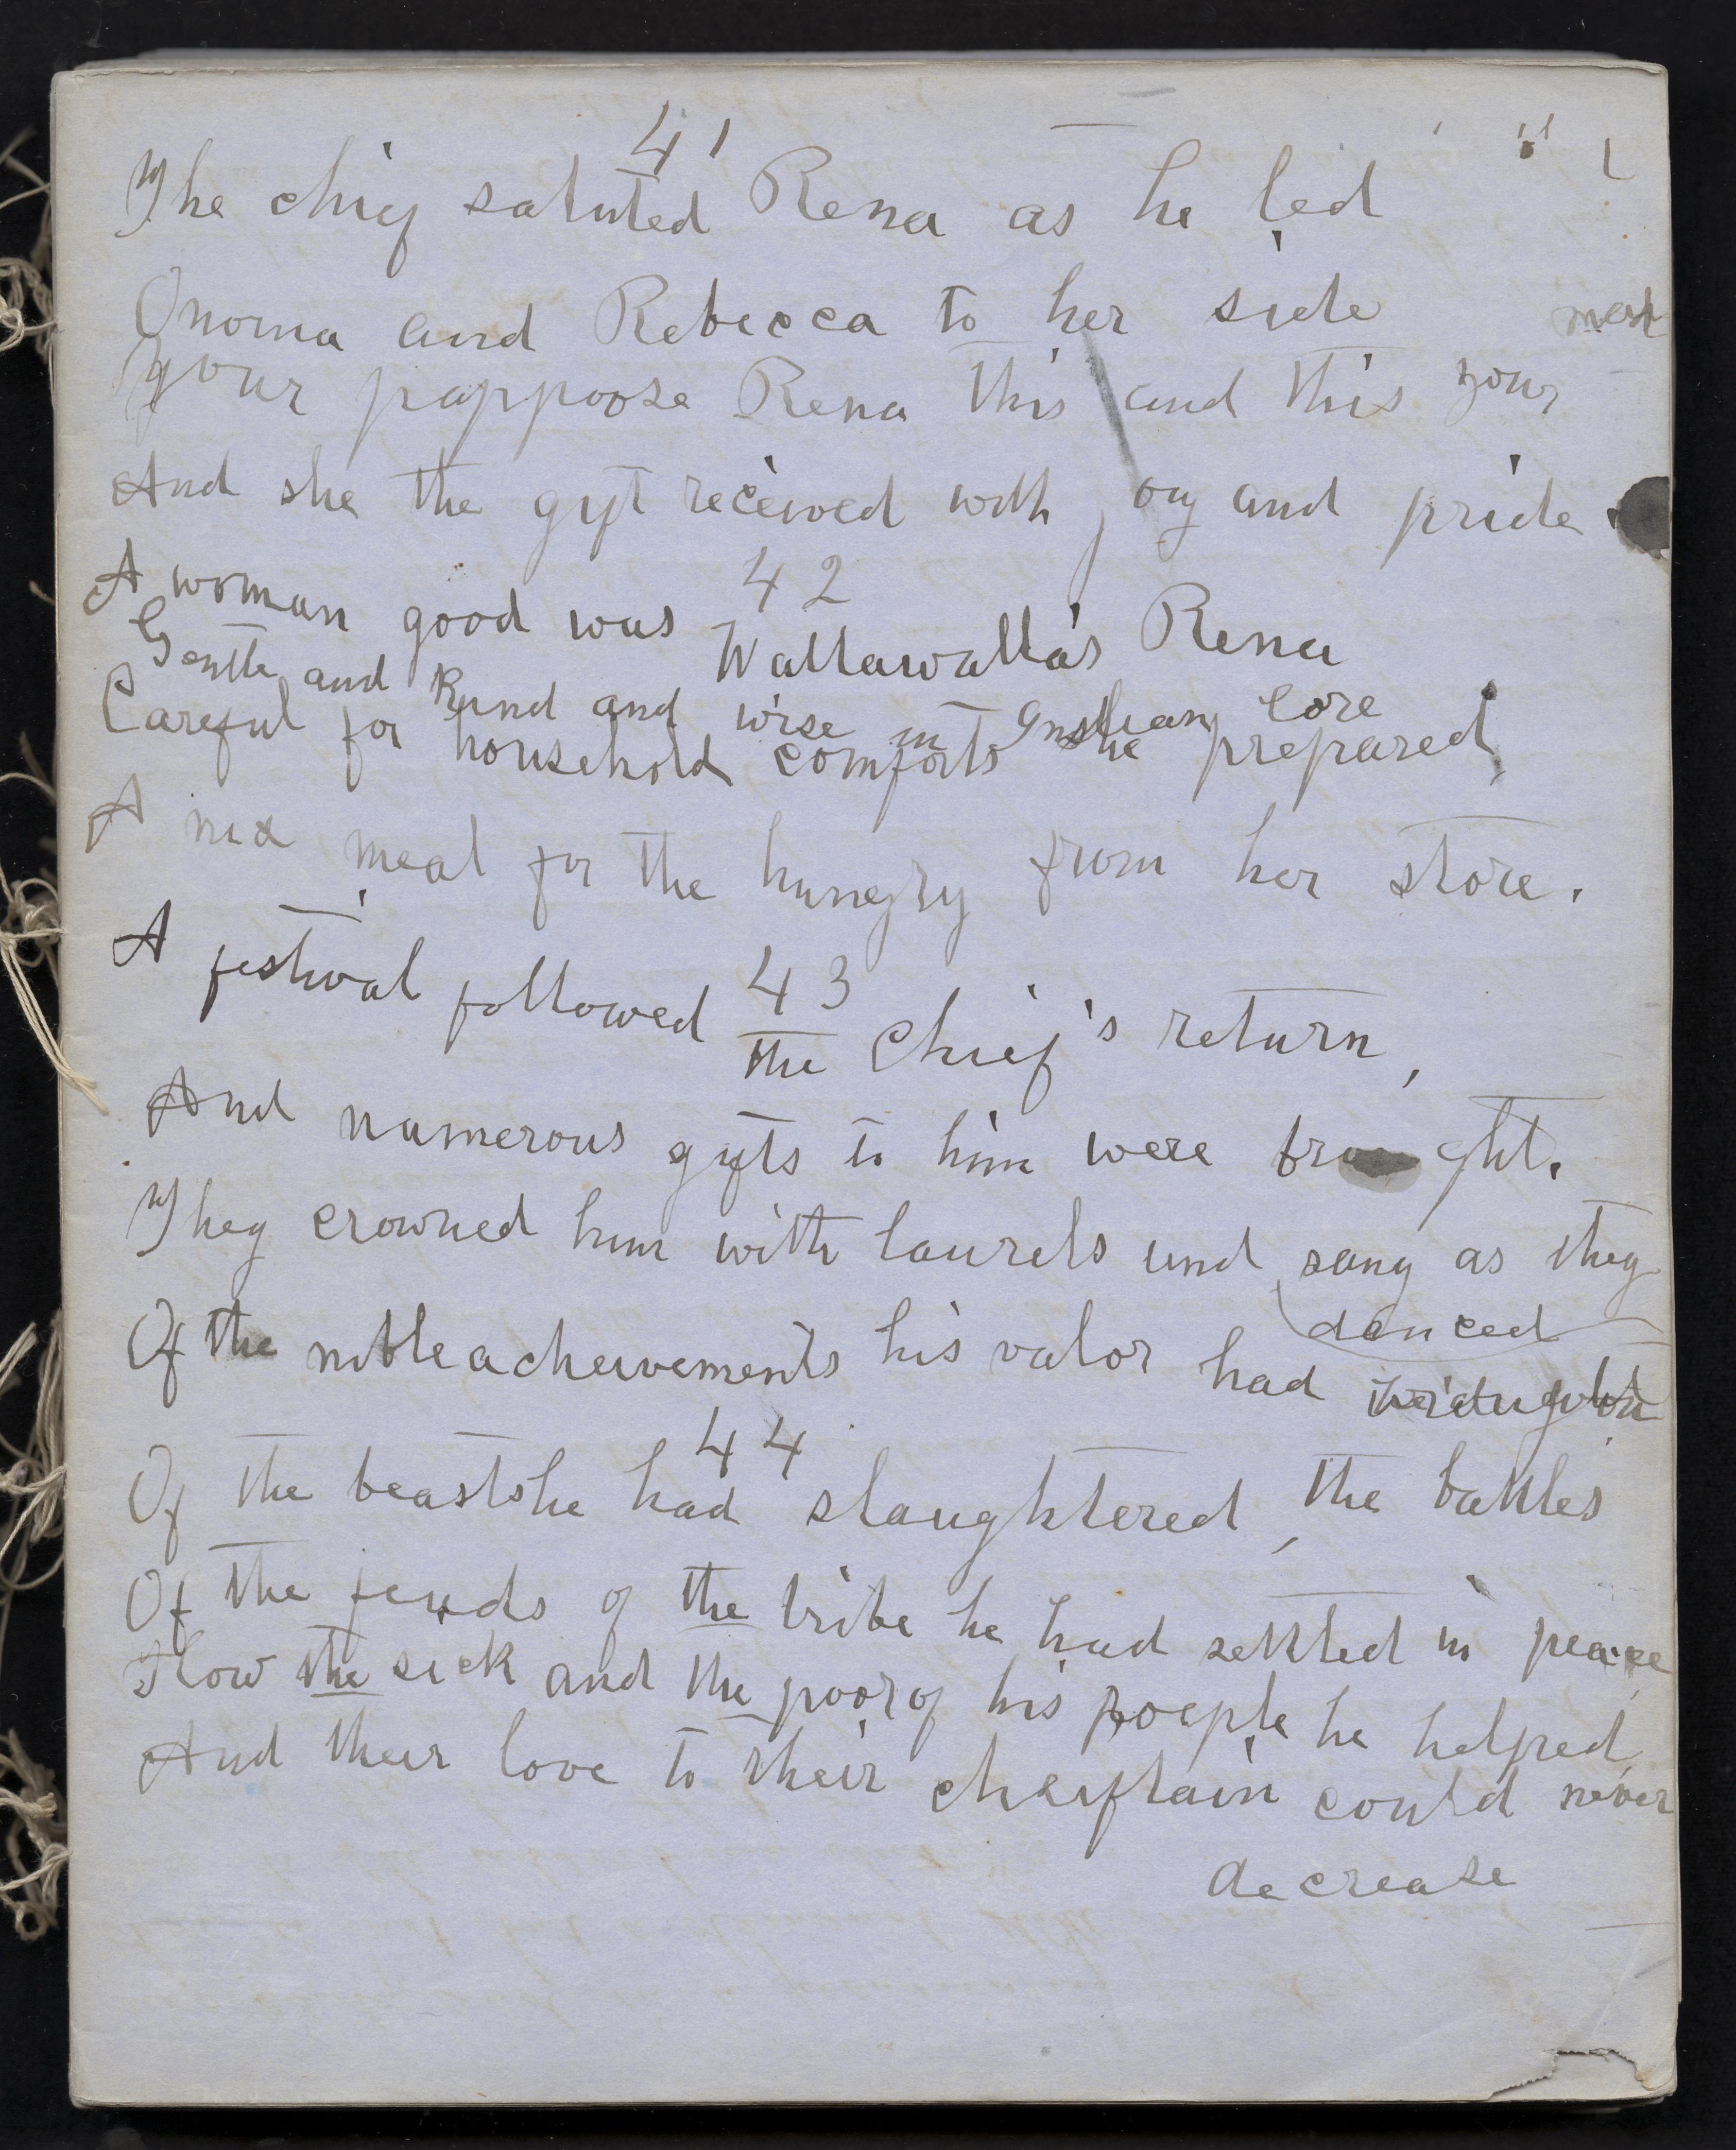 41
The chief saluted Rena as he led
Onoma and Rebecca to her side
Your pappoose Rena this and this your
And she the gift received with joy and pride.
42
A woman good was Wallawalla's Rena
Gentle and kind and wise in Indian lore
Careful for household comforts she prepared,
A nice meal for the hungry from her store.
43
A festival followed the Chief's return,
And numerous gifts to him were brought.
They crowned him with laurels and sang as they
danced
Of the noble acheivements his valor had
44
Of the beasts he had slaughtered, the battles
Of the feuds of the tribe he had settled in peace,
How the sick and the poor of his poeple he helped,
And their love to their cheiftain could never
decrease